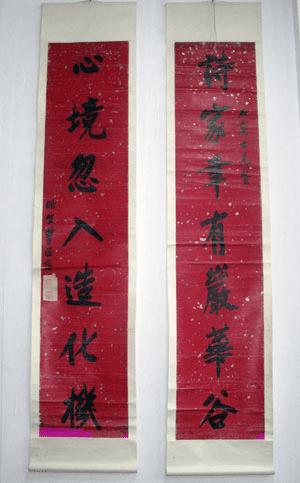 詩家幸有嚴華谷
心境忽入造化機